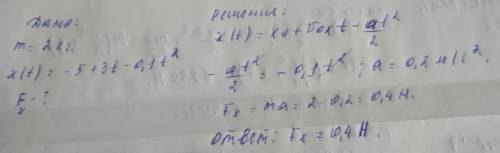 Дано:
m = 2 кг.
x(t) = -5 + 3t - 0,1t²
Fx - ?
Решение:
x(t) = x₀ + v₀ₓt - at²/2
- at²/2 = - 0,1t² ; a = 0,2 м/с².
Fx = ma = 2 · 0,2 = 0,4 Н.
Ответ: Fx = 0,4 Н.